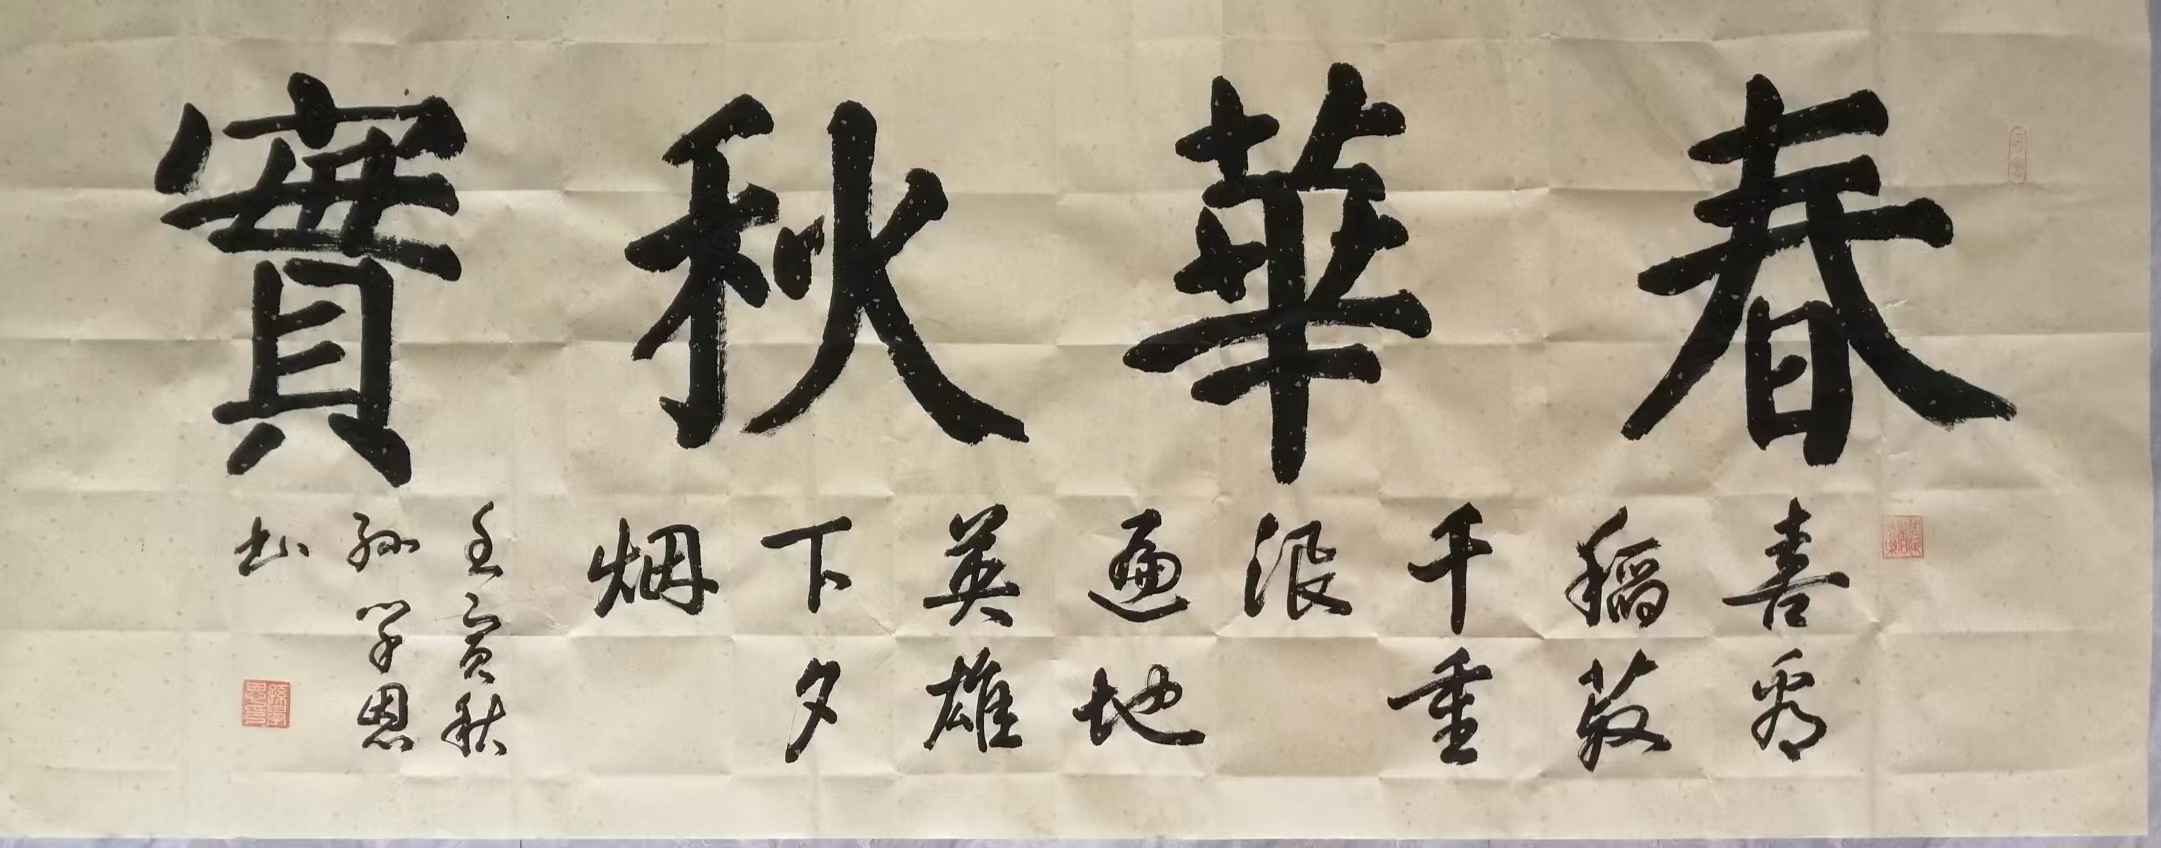 春華秋實
喜看
稻菽
千重
浪
遍地
英雄
下夕
烟
壬寅秋
孫學恩
书